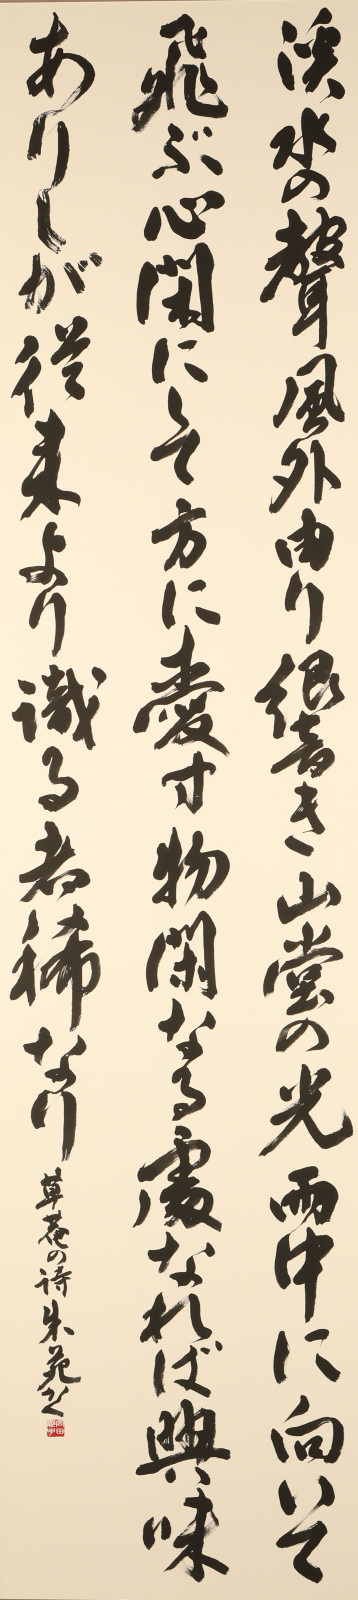 渓水の聲風外由り響き山堂の光雨中に向いて
飛ぶ心閑にして方に愛す物閑なる處なれば興味
ありしが従来より識る者稀なり
草菴の詩朱苑書